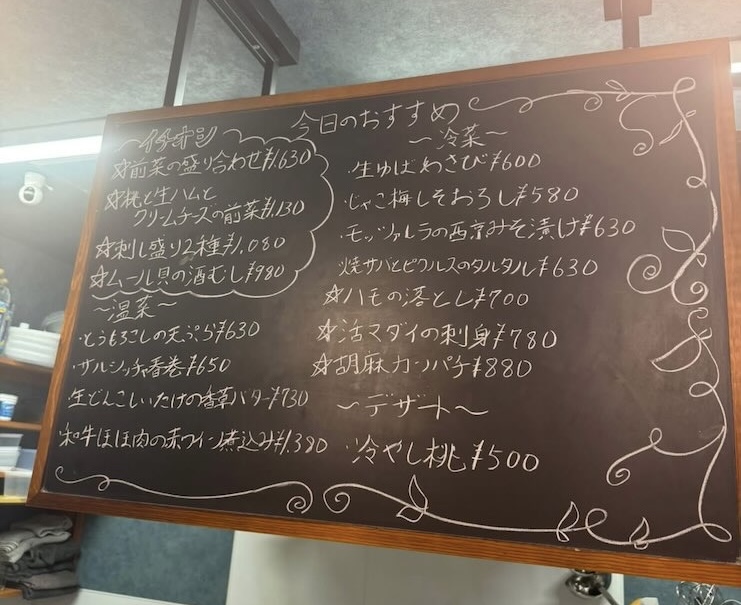 今日のおすすめ
〜イチオシ〜
☆前菜の盛り合わせ¥1,630
☆桃と生ハムと
クリームチーズの前菜¥1,130
☆刺し盛り2種¥1,080
☆ムール貝の酒むし¥980
〜温菜〜
・とうもろこしの天ぷら¥630
・サルシッチャ春巻¥650
・生どんこしいたけの香草バター¥730
・和牛ほほ肉の赤ワイン煮込み¥1,380
〜冷菜〜
・生ゆばわさび¥600
・じゃこ梅しそおろし¥580
・モッツァルラの西京みそ漬け¥630
焼サバとピクルスのタルタル¥630
☆ハモの落とし¥700
☆活マダイの刺身¥780
☆胡麻カンパチ¥880
〜デザート〜
冷やし桃¥500